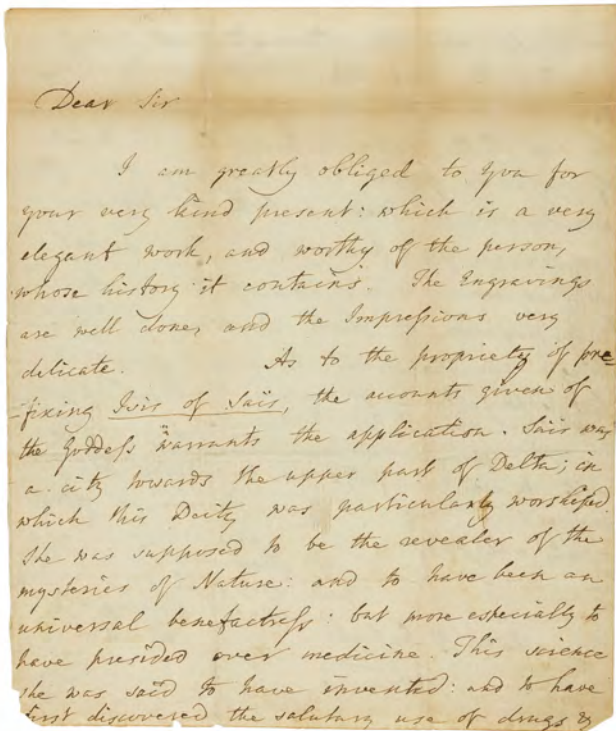 Dear Sir
I am greatly obliged to You for
your very kind present: which is a very
elegant work, and worthy of the person,
whose history it contains. The Engravings
are well done, and the Impreſsions very
delicate. As to the propriety of pre=
=fixing Isis of Saïs, the accounts given of
the Goddeſs warrants the application. Sais was
a city towards the upper part of Delta; in
which this Deity was particularly worshiped.
She was supposed to be the revealer of the
mysteries of Nature: and to have been an
universal benefactreſs: but more especially to
have presided over medicine. This science
she was said to have invented: and to have
first discovered the salutary use of drugs &